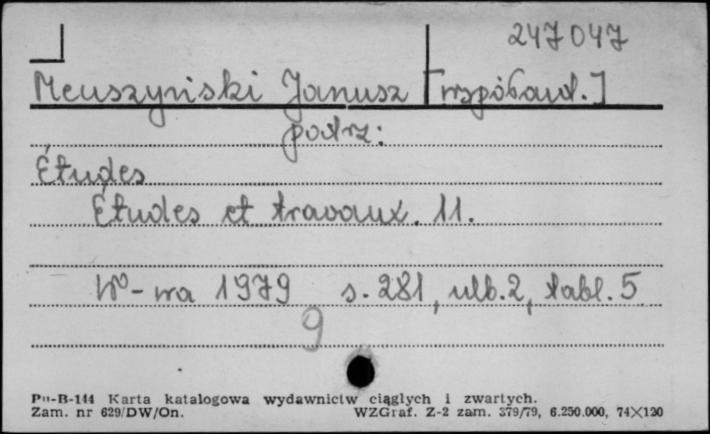 247047
Meuszyński Janusz [współaut.]
podrz:
Études
Études et travaux. 11.
W-wa 1979 s. 281, ulb. 2, tabl. 5
9
Pu-B-144 Karta katalogowa wydawnictw ciągłych i zwartych.
Zam. nr 629/DW/On. WZGraf. Z-2 zam. 379/79, 6.250.000, 74×120